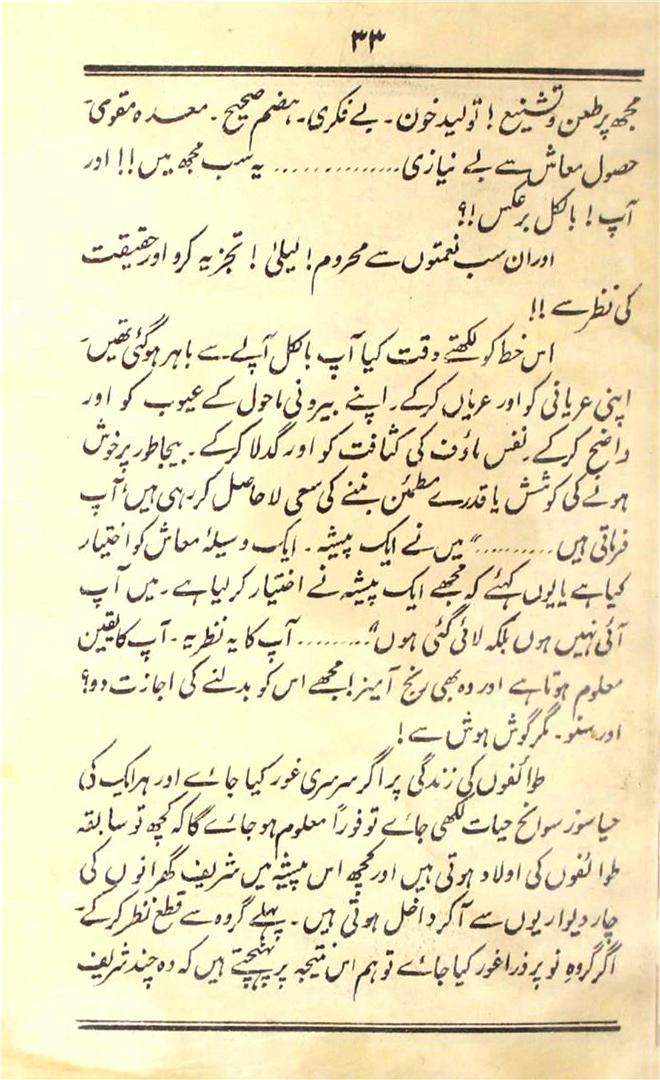 ۳۳
مجھ پر طعن و تشنیع ! تولید خون ۔ بے فکری ۔ ہضم صحیح ۔ معدہ مقوی ۔
حصول معاش سے بے نیازی .............. یہ سب مجھ میں !! اور
آپ ! بالکل برعکس !؟
اور ان سب نعمتوں سے محروم ! لیلیٰ ! تجزیہ کرو اور حقیقت
کی نظر سے !!
اس خط کو لکھتے وقت کیا آپ بالکل آپے سے باہر ہو گئی تھیں ۔
اپنی عریانی کو اور عریاں کر کے ۔ اپنے بیرونی ماحول کے عیوب کو اور
واضح کر کے ۔ نفس ماؤف کی کثافت کو اور گدلا کر کے ۔ بیجا طور پر خوش
ہونے کی کوشش یا قدرے مطمئن بننے کی سعی لاحاصل کر رہی ہیں ! آپ
فرماتی ہیں .......... " میں نے ایک پیشہ ۔ ایک وسیلۂ معاش کو اختیار
کیا ہے یا یوں کہئے کہ مجھے ایک پیشہ نے اختیار کر لیا ہے ۔ میں آپ
آئی نہیں ہوں بلکہ لائی گئی ہوں " ......... آپ کا یہ نظریہ ۔ آپ کا یقین
معلوم ہوتا ہے اور وہ بھی رنج آمیز ! مجھے اس کو بدلنے کی اجازت دو ؟
اور سنو ۔ مگر گوش ہوش سے !
طوائفوں کی زندگی پر اگر سرسری غور کیا جائے اور ہر ایک کی
حیا سوز سوانح حیات لکھی جائے تو فوراً معلوم ہو جائے گا کہ کچھ تو سابقہ
طوائفوں کی اولاد ہوتی ہیں اور کچھ اس پیشہ میں شریف گھرانوں کی
چار دیواریوں سے آ کر داخل ہوتی ہیں ۔ پہلے گروہ سے قطع نظر کر کے ۔
اگر گروہِ نو پر ذرا غور کیا جائے تو ہم اس نتیجہ پر پہنچتے ہیں کہ وہ چند شریف